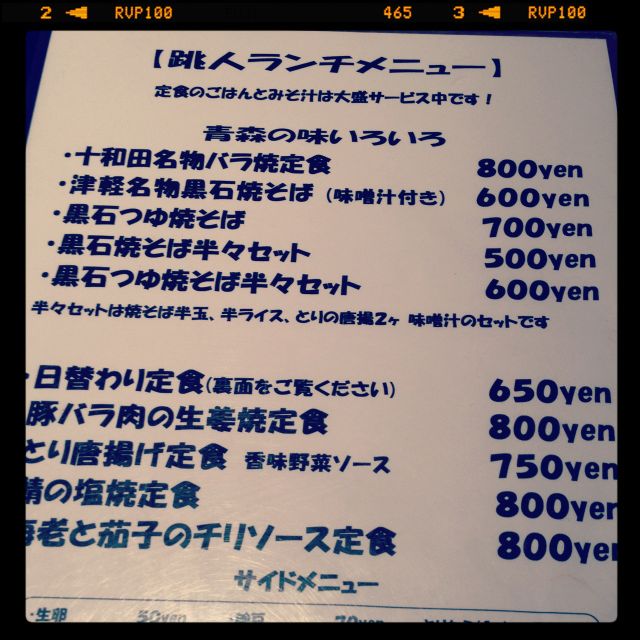 2 RVP100 465 3 RVP100
【跳人ランチメニュー】
定食のごはんとみそ汁は大盛サービス中です！
青森の味いろいろ
・十和田名物バラ焼定食 800yen
・津軽名物黒石焼そば (味噌汁付き) 600yen
・黒石つゆ焼そば 700yen
・黒石焼そば半々セット 500yen
・黒石つゆ焼そば半々セット 600yen
半々セットは焼そば半玉、半ライス、とりの唐揚2ヶ 味噌汁のセットです
・日替わり定食(裏面をご覧ください) 650yen
豚バラ肉の生姜焼定食 800yen
とり唐揚げ定食 香味野菜ソース 750yen
鯖の塩焼定食 800yen
海老と茄子のチリソース定食 800yen
サイドメニュー
・生卵 50yen 70yen